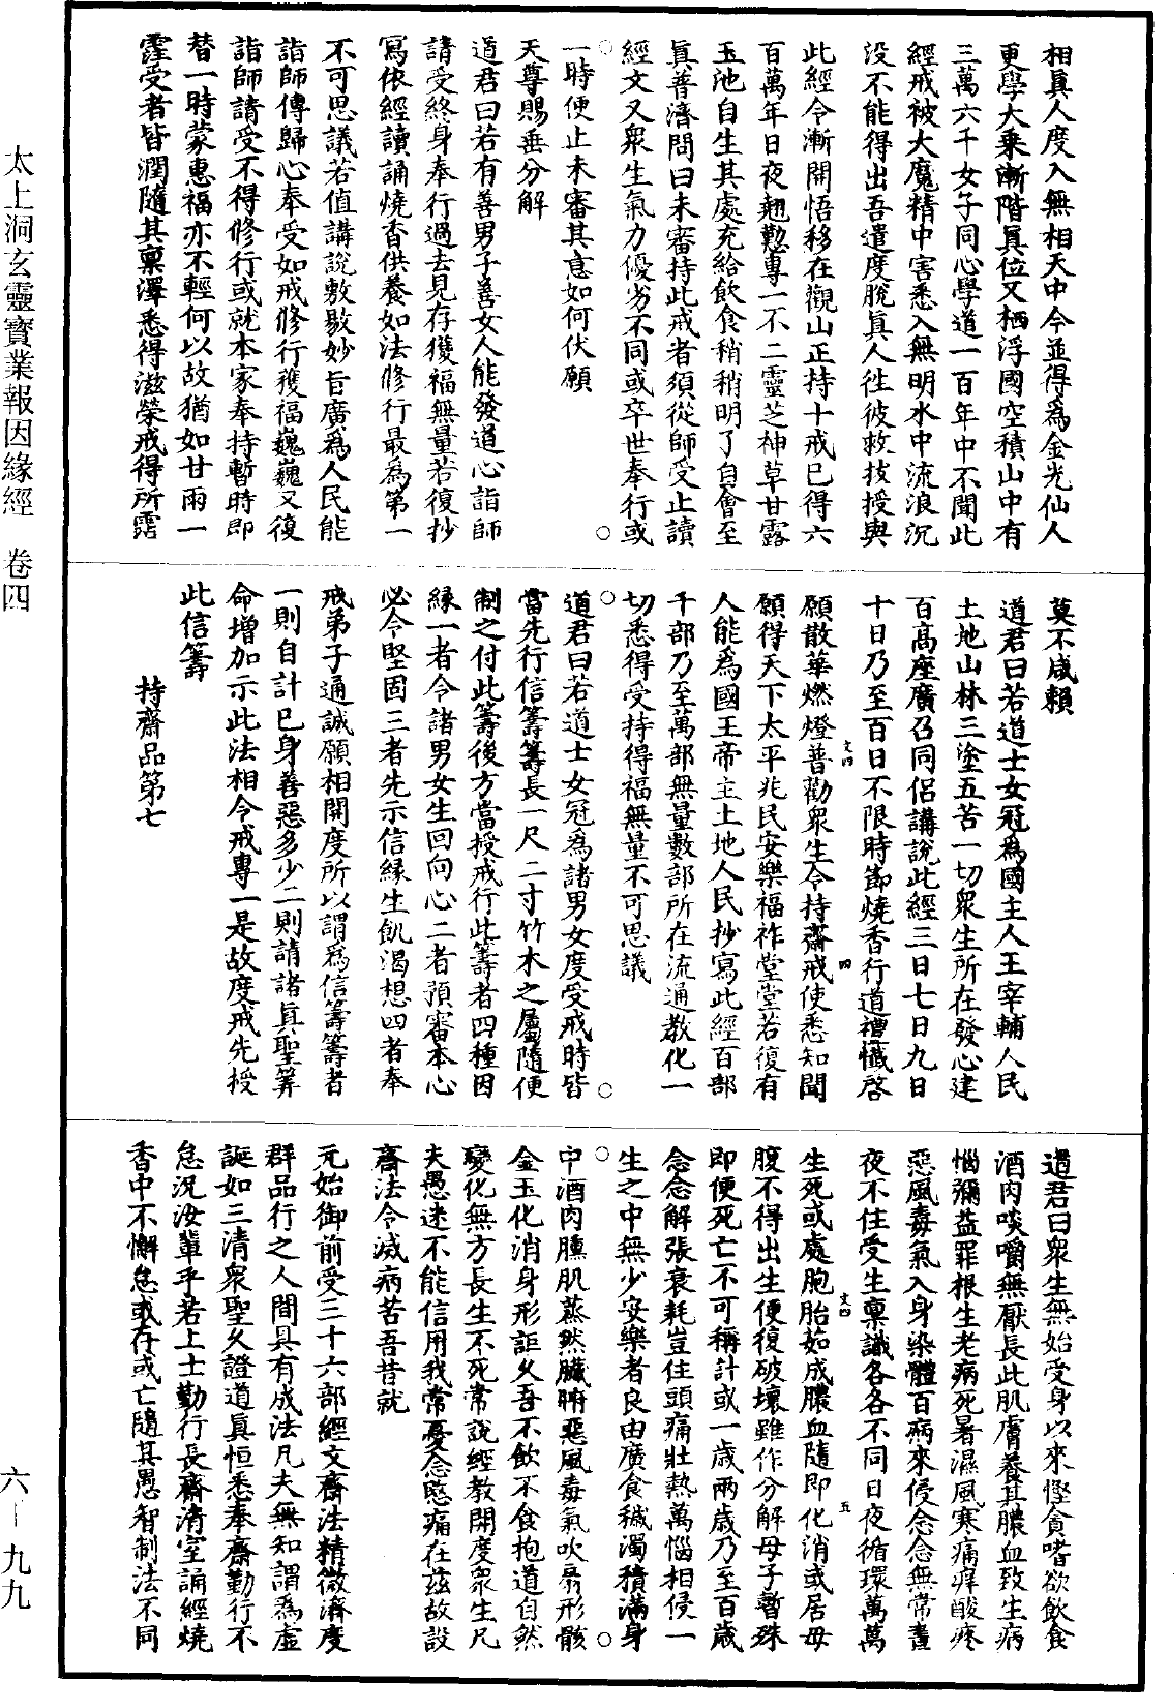 相真人度入無相天中今並得為金光仙人
更學大乗漸階真位又栖浮國空積山中有
三萬六千女子同心學道一百年中不聞此
經戒被大魔精中害悉入無明水中流浪沉
没不能得出吾遣度脫真人往彼救拔授與
此經令漸開悟移在觀山正持十戒已得六
百萬年日夜翹懃專一不二靈芝神草甘露
玉池自生其處充給飲食稍稍明了自會至
真普濟問曰未審持此戒者須從師受止讀
經文又衆生氣力優劣不同或卒世奉行或
一時便止未審其意如何伏願
天尊賜垂分解
道君曰若有善男子善女人能發道心詣師
請受終身奉行過去見存獲福無量若復抄
寫依經讀誦燒香供養如法修行最為第一
不可思議若值講說敷敭妙旨廣為人民能
詣師傳歸心奉受如戒修行獲福巍巍又復
詣師請受不得修行或就本家奉持暫時即
替一時蒙惠福亦不輕何以故猶如甘雨一
霔受者皆潤隨其稟澤悉得滋榮戒得所霑
莫不咸賴
道君曰若道士女冠為國主人王宰輔人民
土地山林三塗五苦一切衆生所在發心建
百高座廣召同侶講說此經三日七日九日
十日乃至百日不限時節燒香行道禮懺啓
願散華燃燈普勸衆生令持齋戒使悉知聞
願得天下太平兆民安樂福祚堂堂若復有
人能為國王帝主土地人民抄寫此經百部
千部乃至萬部無量數部所在流通教化一
切悉得受持得福無量不可思議
道君曰若道士女冠為諸男女度受戒時皆
當先行信籌籌長一尺二寸竹木之屬隨便
制之付此籌後方當授戒行此籌者四種因
緣一者令諸男女生回向心二者預審本心
必令堅固三者先示信緣生飢渴想四者奉
戒弟子通誠願相開度所以謂為信籌籌者
一則自計已身善惡多少二則請諸真聖筭
命增加示此法相令戒專一是故度戒先授
此信籌
持齋品第七
道君曰衆生無始受身以來慳貪嗜欲飲食
酒肉啖嚼無厭長此肌膚養其膿血致生病
惱彌益罪根生老病死暑濕風寒痛痒酸疼
惡風毒氣入身染體百病來侵念念無常晝
夜不住受生稟識各各不同日夜循環萬萬
生死或處胞胎茹成膿血隨即化消或居母
腹不得出生便復破壞雖作分解母子暫殊
即便死亡不可稱計或一歲兩歲乃至百歲
念念解張衰耗豈住頭痛壯熱萬惱相侵一
生之中無少安樂者良由廣食穢濁積滿身
中酒肉臐肌蒸然臟腑惡風毒氣吹暴形骸
金玉化消身形詎久吾不飲不食抱道自然
變化無方長生不死常說經教開度衆生凡
夫愚迷不能信用我常憂念慜痛在茲故設
齋法令滅病苦吾昔就
元始御前受三十六部經文齋法精微濟度
群品行之人間具有成法凡夫無知謂為虛
誕如三清衆聖久證道真恒悉奉齋勤行不
怠況汝輩乎若上士勤行長齋清室誦經燒
香中不懈怠或存或亡隨其愚智制法不同
文四
四
文四
五
太上洞玄靈寶業報因緣經　卷四
六—九九